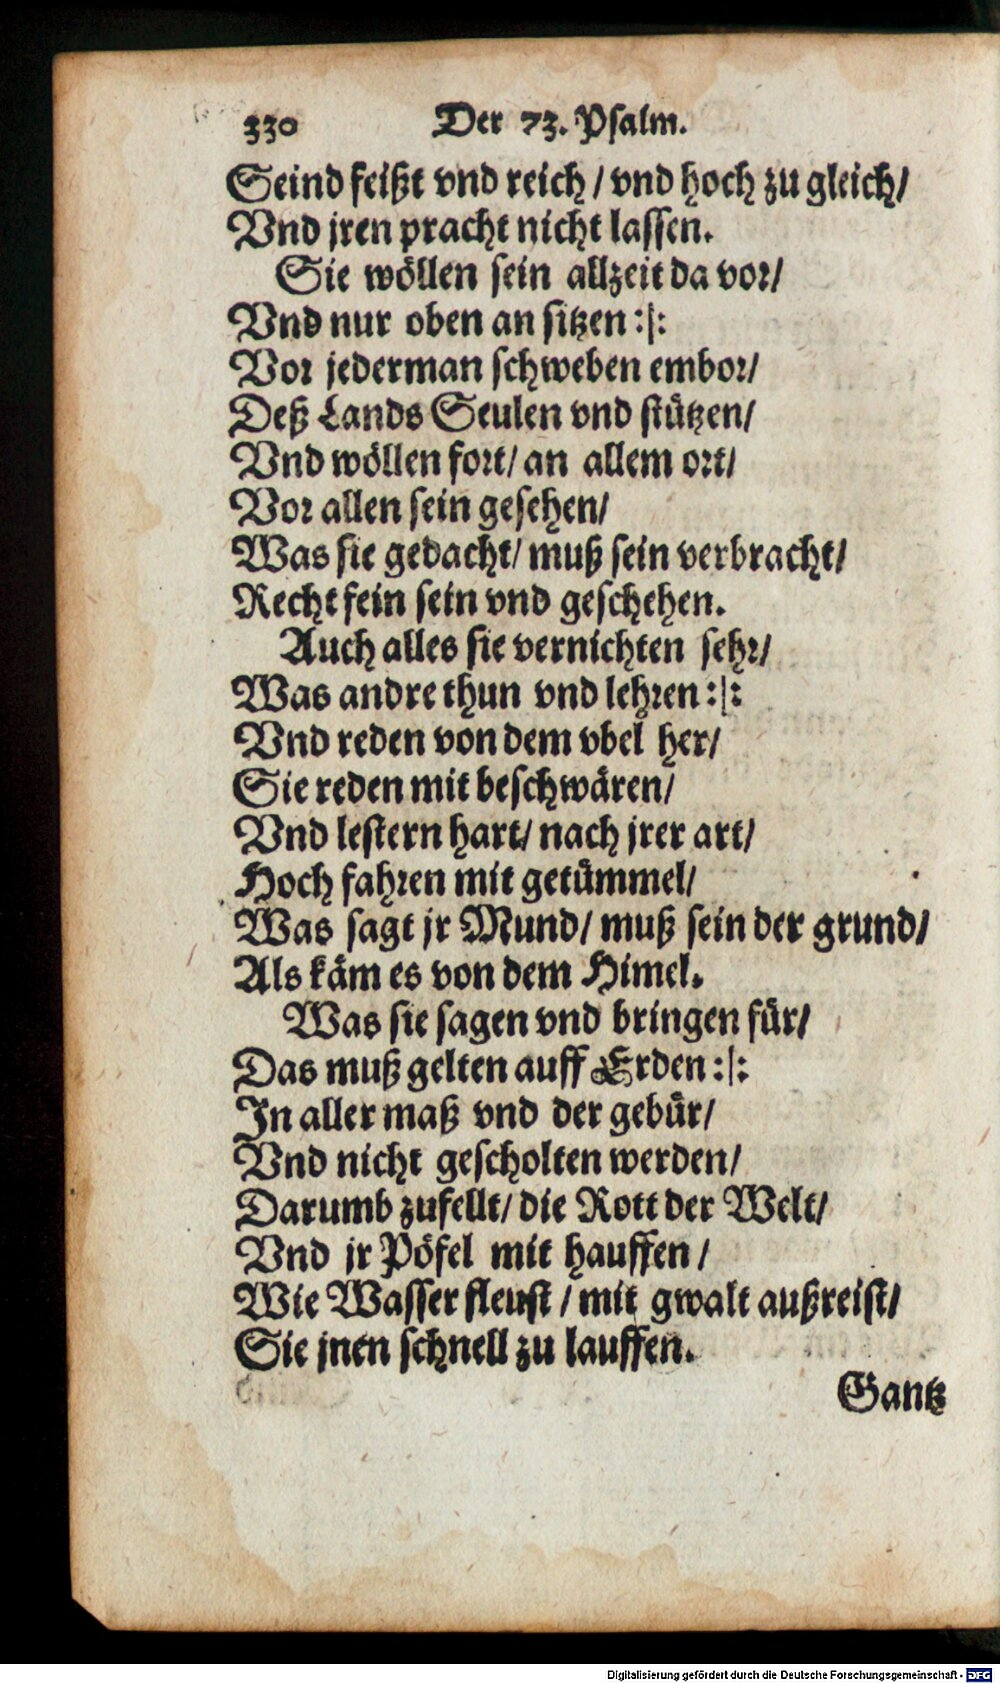 330 Der 73. Psalm.
Seind feißt vnd reich / vnd hoch zu gleich /
Vnd jren pracht nicht lassen.
Sie wöllen sein allzeit da vor /
Vnd nur oben an sitzen :|:
Vor jederman schweben embor /
Deß Lands Seulen vnd stützen /
Vnd wöllen fort / an allem ort /
Vor allen sein gesehen /
Was sie gedacht / muß sein verbracht /
Recht fein sein vnd geschehen.
Auch alles sie vernichten sehr /
Was andre thun vnd lehren :|:
Vnd reden von dem vbel her /
Sie reden mit beschwären /
Vnd lestern hart / nach jrer art /
Hoch fahren mit getümmel /
Was sagt jr Mund / muß sein der grund /
Als käm es von dem Himel.
Was sie sagen vnd bringen für /
Das muß gelten auff Erden :|:
In aller maß vnd der gebür /
Vnd nicht gescholten werden /
Darumb zufellt / die Rott der Welt /
Vnd jr Pöfel mit hauffen /
Wie Wasser fleust / mit gwalt außreist /
Sie jnen schnell zu lauffen.
Gantz
Digitalisierung gefördert durch die Deutsche Forschungsgemeinschaft - DFG